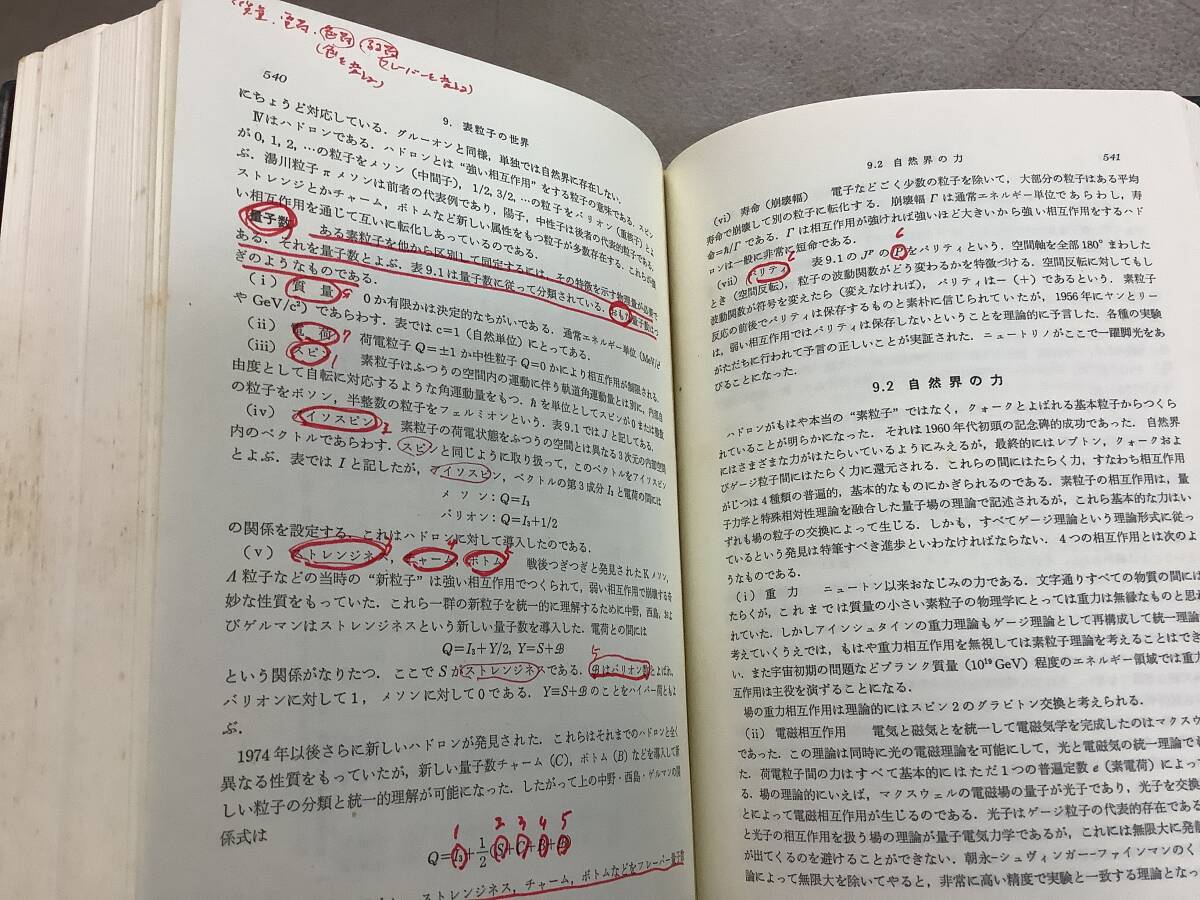 質量.電荷.色荷 弱荷
(色を変える) フレーバーを変える)
540
9. 素粒子の世界
にちょうど対応している．グルーオンと同様，単独では自然界に存在しない．
IVはハドロンである．ハドロンとは“強い相互作用”をする粒子の意味である．スピン
が 0, 1, 2, …の粒子をメソン（中間子），1/2, 3/2, …の粒子をバリオン（重核子）とよ
ぶ．湯川粒子 π メソンは前者の代表例であり，陽子，中性子は後者の代表的粒子である．
ストレンジとかチャーム，ボトムなど新しい属性をもつ粒子が多数存在する．これらが強
い相互作用を通じて互いに転化しあっているのである．
量子数 ある素粒子を他から区別して同定するには，その特徴を示す物理量が必要で
ある．それを量子数とよぶ．表9.1は量子数に従って分類されている．おもな量子数はつ
ぎのようなものである．
(i) 質量 0か有限かは決定的なちがいである．通常エネルギー単位 (MeV/c²
や GeV/c²) であらわす．表では c=1 (自然単位) にとってある．
(ii) 電荷 荷電粒子 Q=±1 か中性粒子 Q=0 かにより相互作用が制限される．
(iii) スピン 素粒子はふつうの空間内の運動に伴う軌道角運動量とは別に，内部自
由度として自転に対応するような角運動量をもつ．ℏ を単位としてスピンが0または整数
の粒子をボソン，半整数の粒子をフェルミオンという．表9.1では J と記してある．
(iv) アイソスピン 素粒子の荷電状態をふつうの空間とは異なる3次元の内部空間
内のベクトルであらわす．スピンと同じように取り扱って，このベクトルをアイソスピン
とよぶ．表では I と記したが，アイソスピン，ベクトルの第3成分 I₃ と電荷の間には
メソン：Q=I₃
バリオン：Q=I₃+1/2
の関係を設定する．これはハドロンに対して導入したのである．
(v) ストレンジネス，チャーム，ボトム 戦後つぎつぎと発見されたKメソン，
Λ 粒子などの当時の“新粒子”は強い相互作用でつくられて，弱い相互作用で崩壊する奇
妙な性質をもっていた．これら一群の新粒子を統一的に理解するために中野，西島，およ
びゲルマンはストレンジネスという新しい量子数を導入した．電荷との間には
Q=I₃+Y/2, Y=S+ℬ
という関係がなりたつ．ここで S がストレンジネスである．ℬはバリオン数とよばれ，
バリオンに対して1，メソンに対して0である．Y≡S+ℬ のことをハイパー荷ともよ
ぶ．
1974年以後さらに新しいハドロンが発見された．これらはそれまでのハドロンと全く
異なる性質をもっていたが，新しい量子数チャーム (C)，ボトム (B) などを導入して新
しい粒子の分類と統一的理解が可能になった．したがって上の中野・西島・ゲルマンの関
係式は
1 2 3 4 5
Q=I₃+1/2(S+C+B+ℬ
ストレンジネス，チャーム，ボトムなどをフレーバー量子数
9.2 自然界の力
541
(vi) 寿命（崩壊幅） 電子などごく少数の粒子を除いて，大部分の粒子はある平均
寿命で崩壊して別の粒子に転化する．崩壊幅 Γ は通常エネルギー単位であらわし，寿
命=ℏ/Γ である．Γ は相互作用が強ければ強いほど大きいから強い相互作用をするハド
ロンは一般に非常に短命である．
(vii) パリティ 表9.1の Jᴾ の P をパリティという．空間軸を全部180°まわした
とき（空間反転），粒子の波動関数がどう変わるかを特徴づける．空間反転に対してもし
波動関数が符号を変えたら（変えなければ），パリティは－（＋）であるという．素粒子
反応の前後でパリティは保存するものと素朴に信じられていたが，1956年にヤンとリー
は，弱い相互作用ではパリティは保存しないということを理論的に予言した．各種の実験
がただちに行われて予言の正しいことが実証された．ニュートリノがここで一躍脚光をあ
びることになった．
9.2 自然界の力
ハドロンがもはや本当の“素粒子”ではなく，クォークとよばれる基本粒子からつくら
れていることが明らかになった．それは1960年代初頭の記念碑的成功であった．自然界
にはさまざまな力がはたらいているようにみえるが，最終的にはレプトン，クォークおよ
びゲージ粒子間にはたらく力に還元される．これらの間にはたらく力，すなわち相互作用
がじつは4種類の普遍的，基本的なものにかぎられるのである．素粒子の相互作用は，量
子力学と特殊相対性理論を融合した量子場の理論で記述されるが，これら基本的な力はい
ずれも場の粒子の交換によって生じる．しかも，すべてゲージ理論という理論形式に従っ
ているという発見は特筆すべき進歩といわなければならない．4つの相互作用とは次のよ
うなものである．
(i) 重力 ニュートン以来おなじみの力である．文字通りすべての物質の間には
たらくが，これまでは質量の小さい素粒子の物理学にとっては重力は無縁なものと思わ
れていた．しかしアインシュタインの重力理論もゲージ理論として再構成して統一理論
考えていくうえでは，もはや重力相互作用を無視しては素粒子理論を考えることはでき
い．また宇宙初期の問題などプランク質量 (10¹⁹ GeV) 程度のエネルギー領域では重力
互作用は主役を演ずることになる．
場の重力相互作用は理論的にはスピン2のグラビトン交換と考えられる．
(ii) 電磁相互作用 電気と磁気とを統一して電磁気学を完成したのはマクスウ
であった．この理論は同時に光の電磁理論を可能にして，光と電磁気の統一理論でも
た．荷電粒子間の力はすべて基本的にはただ1つの普遍定数 e（素電荷）によっ
る．場の理論的にいえば，マクスウェルの電磁場の量子が光子であり，光子を交換
とによって電磁相互作用が生じるのである．光子はゲージ粒子の代表的存在である
と光子の相互作用を扱う場の理論が量子電気力学であるが，これには無限大に発散
が出てくるのを避けることができない．朝永-シュヴィンガー-ファインマンのく
論によって無限大を除いてやると，非常に高い精度で実験と一致する理論となっ